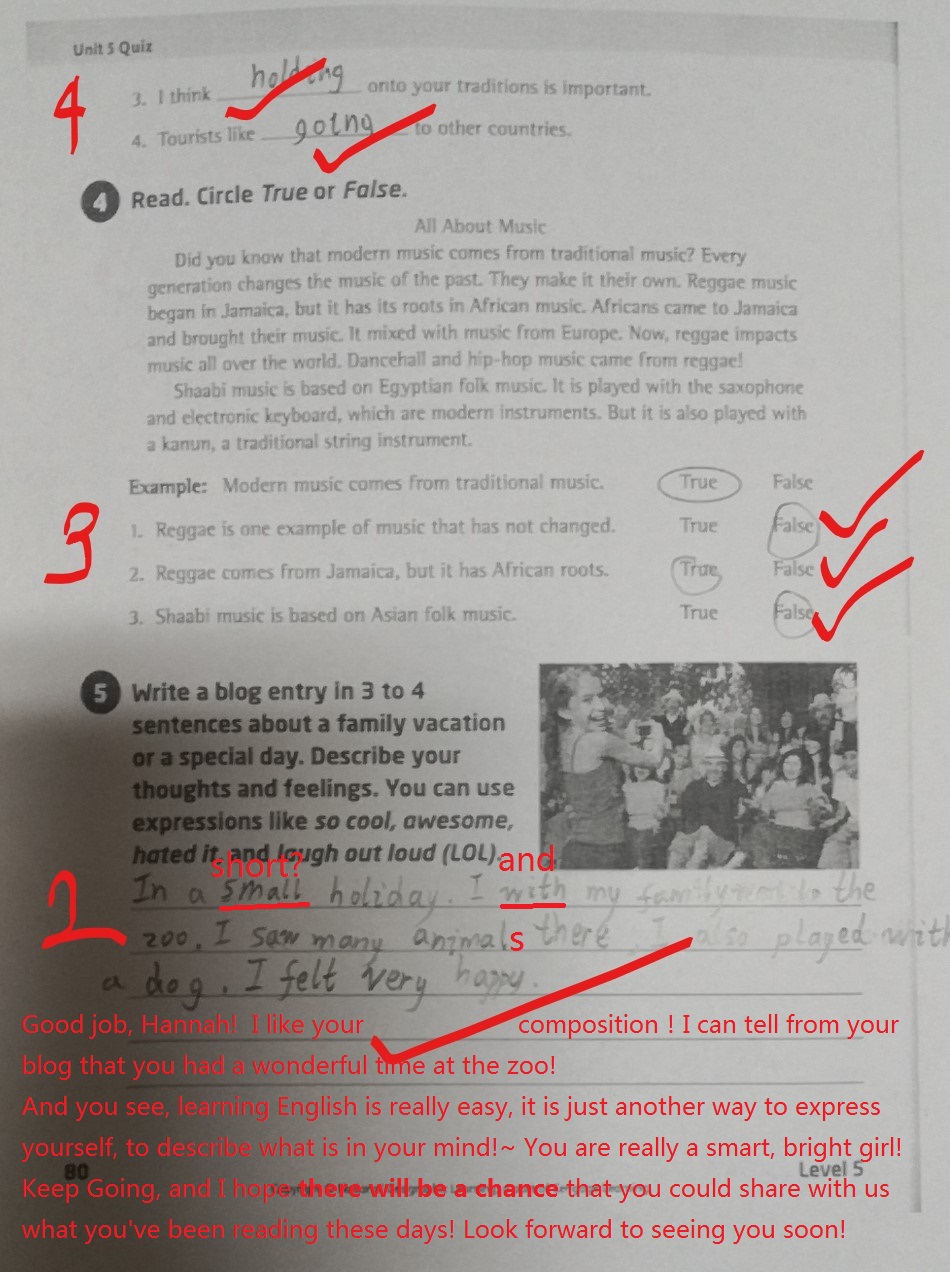 Unit 5 Quiz
4
3. I think holding onto your traditions is important.
4. Tourists like going to other countries.
4 Read. Circle True or False.
All About Music
Did you know that modern music comes from traditional music? Every
generation changes the music of the past. They make it their own. Reggae music
began in Jamaica, but it has its roots in African music. Africans came to Jamaica
and brought their music. It mixed with music from Europe. Now, reggae impacts
music all over the world. Dancehall and hip-hop music came from reggae!
Shaabi music is based on Egyptian folk music. It is played with the saxophone
and electronic keyboard, which are modern instruments. But it is also played with
a kanun, a traditional string instrument.
Example: Modern music comes from traditional music. True False
3
1. Reggae is one example of music that has not changed. True False
2. Reggae comes from Jamaica, but it has African roots. True False
3. Shaabi music is based on Asian folk music. True False
5 Write a blog entry in 3 to 4
sentences about a family vacation
or a special day. Describe your
thoughts and feelings. You can use
expressions like so cool, awesome,
hated it, and laugh out loud (LOL).
short? and
2
In a small holiday. I with my family to the
zoo. I saw many animals there. I also played with
a dog. I felt very happy.
Good job, Hannah! I like your composition ! I can tell from your
blog that you had a wonderful time at the zoo!
And you see, learning English is really easy, it is just another way to express
yourself, to describe what is in your mind!~ You are really a smart, bright girl!
80 Level 5
Keep Going, and I hope there will be a chance that you could share with us
what you've been reading these days! Look forward to seeing you soon!